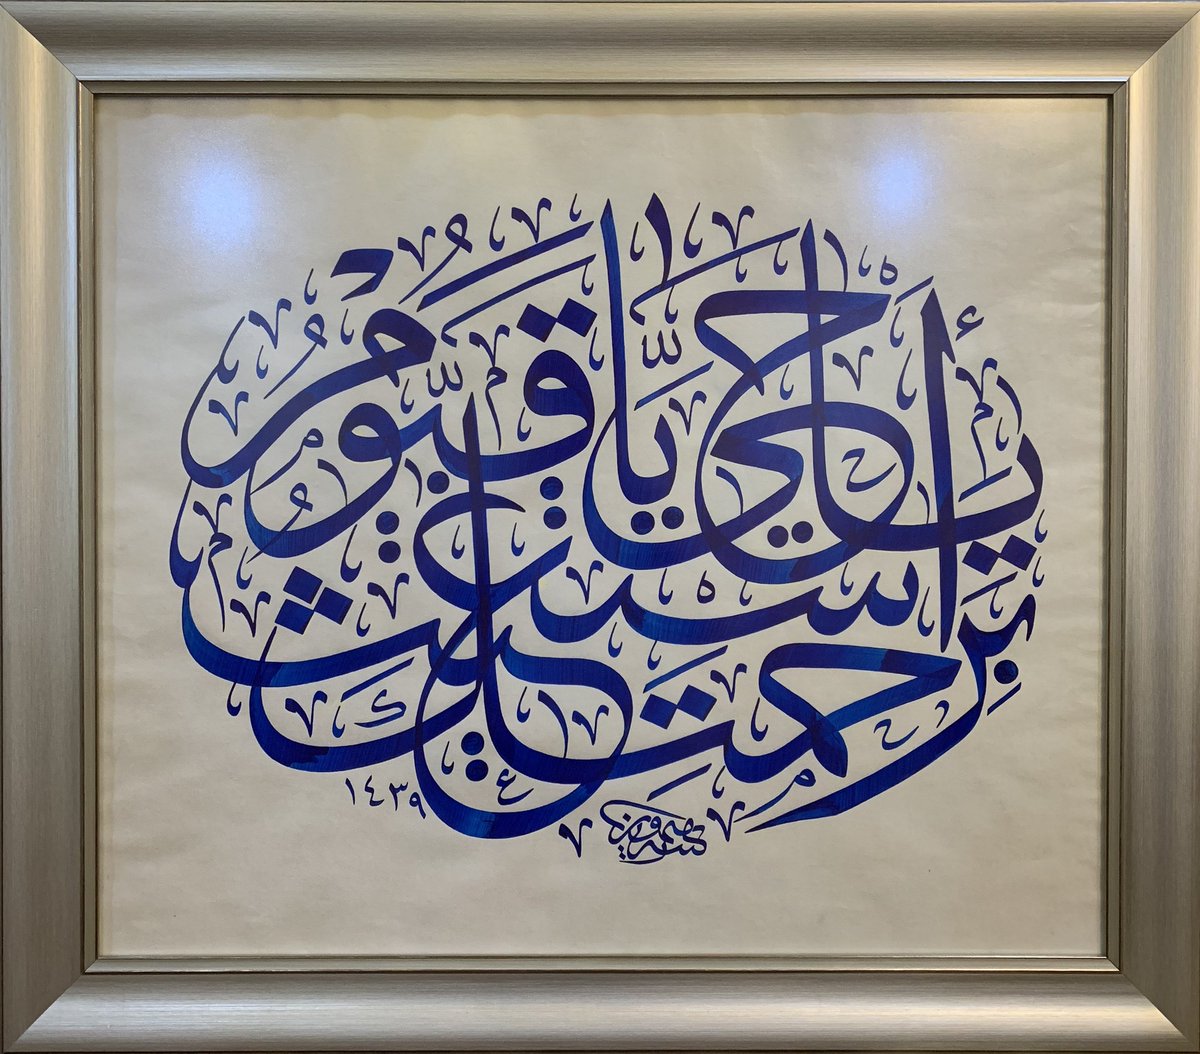 يَا حَيُّ يَا قَيُّومُ
بِرَحْمَتِكَ أَسْتَغِيثُ
١٤٣٩